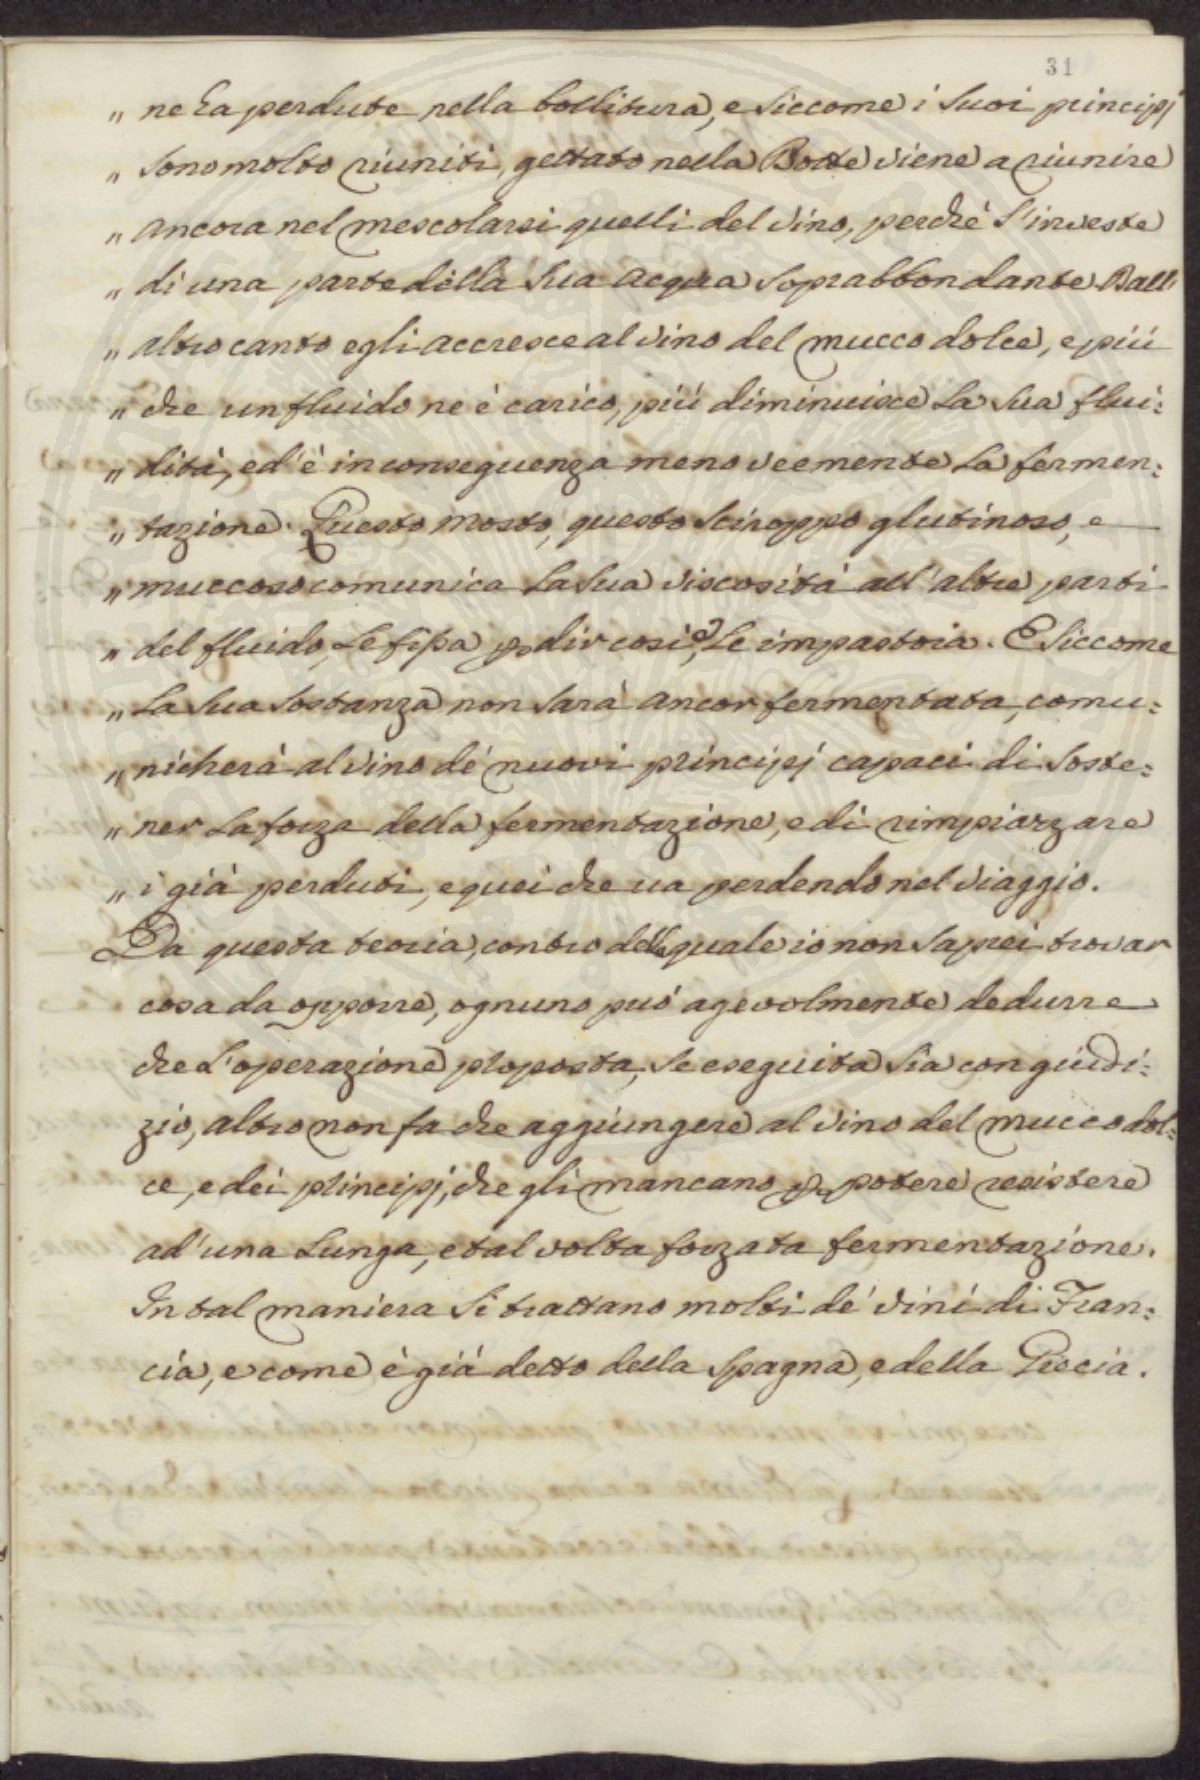 31
„ ne ha perdute nella bollitura, e siccome i suoi principj
„ sono molto riuniti, gettato nella Botte viene a riunire
„ ancora nel mescolarsi quelli del vino, perchè s'investe
„ di una parte della sua acqua soprabbondante. Dall'
„ altro canto egli accresce al vino del mucco dolce, e più
„ che un fluido ne è carico, più diminuisce la sua flui:
„ dità, ed'è in conseguenza meno veemente la fermen:
„ tazione. Questo mosto, questo sciroppo glutinoso, e
„ muccoso comunica la sua viscosità all'altre parti
„ del fluido, le fissa p dir così, e le impastoia. E siccome
„ la sua sostanza non sarà ancor fermentata, comu:
„ nicherà al vino de' nuovi principj capaci di soste:
„ ner la forza della fermentazione, e di rimpiazzare
„ i già perduti, e quei che va perdendo nel viaggio.
Da questa teoria, contro della quale io non saprei trovar
cosa da opporre, ognuno può agevolmente dedurre
che l'operazione proposta, se eseguita sia con giudi:
zio, altro non fa che aggiungere al vino del mucco dol:
ce, e dei principj, che gli mancano p potere resistere
ad'una lunga, e tal volta forzata fermentazione.
In tal maniera si trattano molti de' vini di Fran:
cia, e come è già detto della Spagna, e della Grecia.